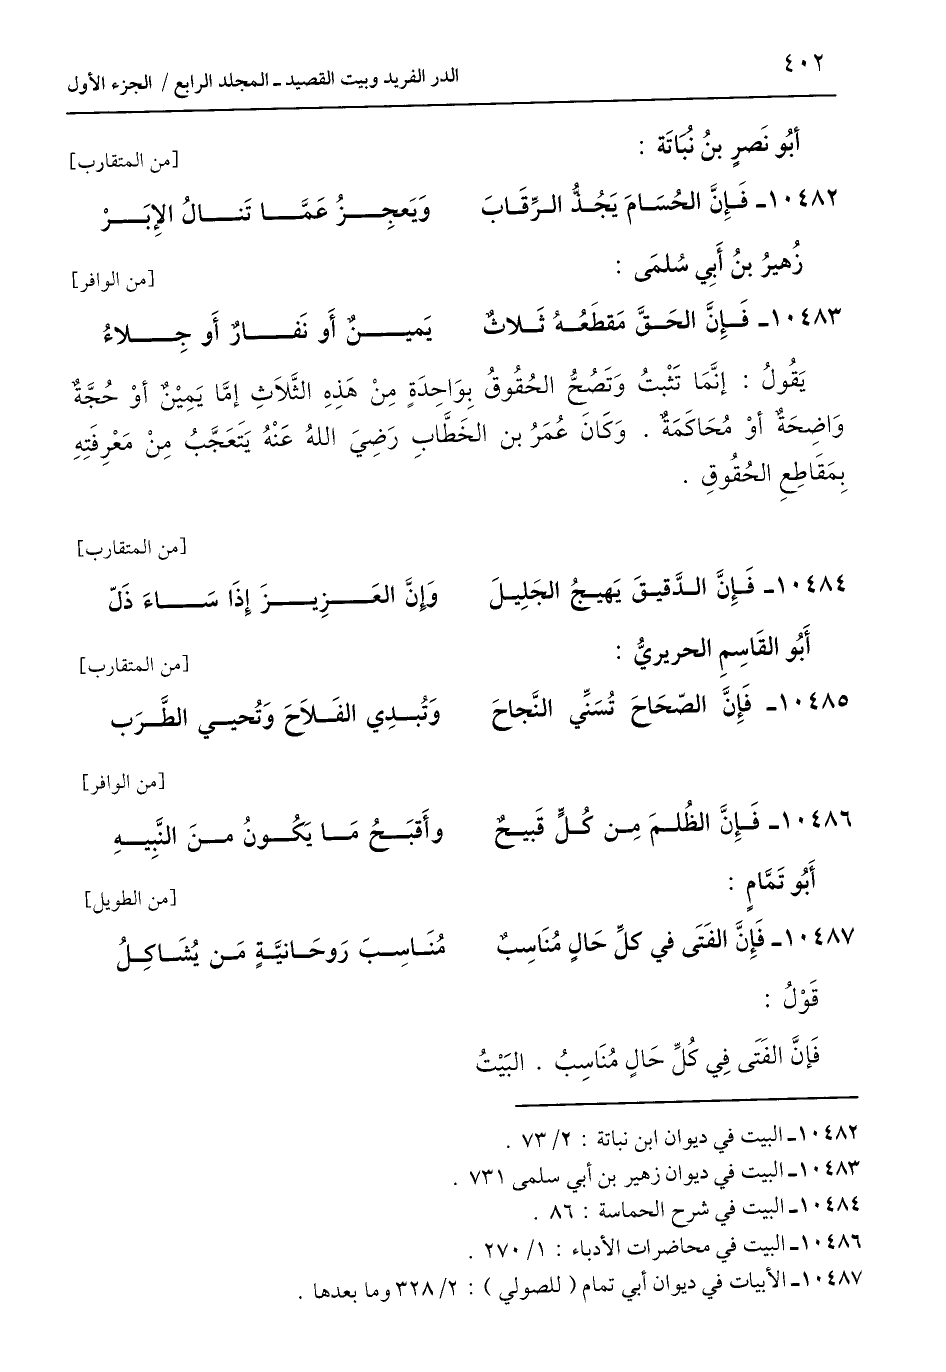 ٤٠٢
الدر الفريد وبيت القصيد ـ المجلد الرابع / الجزء الأول
أَبُو نَصرٍ بنُ نُبَاتَة :
[من المتقارب]
١٠٤٨٢ـ فَإِنَّ الحُسَامَ يَجُذُّ الرِّقَابَ وَيَعجِزُ عَمَّا تَنالُ الإِبَرْ
زُهيرُ بنُ أَبِي سُلمَى :
[من الوافر]
١٠٤٨٣ـ فَإِنَّ الحَقَّ مَقطَعُهُ ثَلاثٌ يَمينٌ أَو نَفَارٌ أَو جِلاءُ
يَقُولُ : إنَّمَا تَثْبتُ وَتَصُحُّ الحُقُوقُ بِوَاحِدَةٍ مِنْ هَذِهِ الثَّلَاثِ إمَّا يَمِيْنٌ أوْ حُجَّةٌ
وَاضِحَةٌ أوْ مُحَاكَمَةٌ . وَكَانَ عُمَرُ بن الخَطَّابِ رَضِيَ اللهُ عَنْهُ يَتَعَجَّبُ مِنْ مَعْرِفَتِهِ
بِمَقَاطِعِ الحُقُوقِ .
[من المتقارب]
١٠٤٨٤ـ فَإِنَّ الدَّقيقَ يَهيجُ الجَلِيلَ وَإِنَّ العَزِيزَ إِذَا سَاءَ ذَلّ
أَبُو القَاسِمِ الحريريُّ :
[من المتقارب]
١٠٤٨٥ـ فَإِنَّ الصّحَاحَ تُسَنِّي النَّجاحَ وَتُبدِي الفَلاَحَ وَتُحيي الطَّرَب
[من الوافر]
١٠٤٨٦ـ فَإِنَّ الظُلمَ مِن كُلٍّ قَبيحٌ وأَقبَحُ مَا يَكُونُ منَ النَّبِيهِ
أَبُو تَمَّامٍ :
[من الطويل]
١٠٤٨٧ـ فَإِنَّ الفَتَى في كلِّ حَالٍ مُنَاسِبٌ مُنَاسِبَ رَوحَانيَّةٍ مَن يُشَاكِلُ
قَوْلُ :
فَإنَّ الفَتَى فِي كُلِّ حَالٍ مُنَاسِبُ . البَيْتُ
١٠٤٨٢ـ البيت في ديوان ابن نباتة : ٢/ ٧٣ .
١٠٤٨٣ـ البيت في ديوان زهير بن أبي سلمى ٧٣١ .
١٠٤٨٤ـ البيت في شرح الحماسة : ٨٦ .
١٠٤٨٦ـ البيت في محاضرات الأدباء : ١/ ٢٧٠ .
١٠٤٨٧ـ الأبيات في ديوان أبي تمام ( للصولي ) : ٢/ ٣٢٨ وما بعدها .